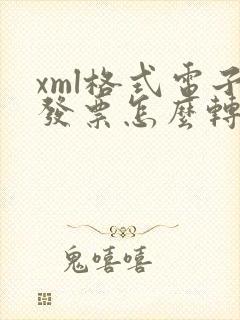 xml格式電子
發票怎麼轉
鬼嘻嘻